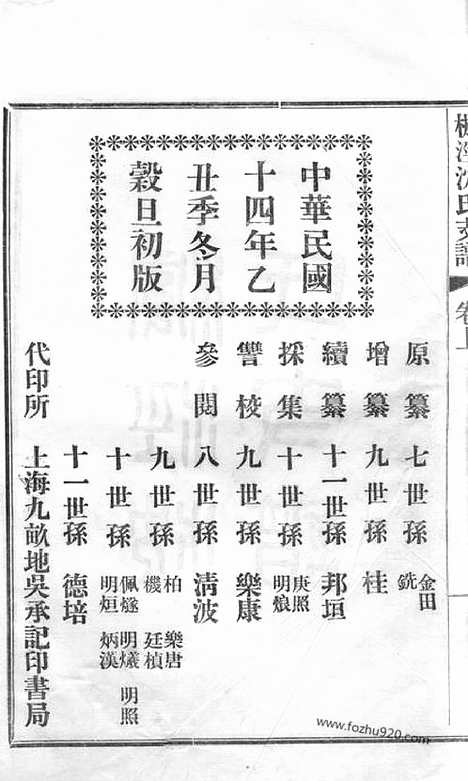 涇沈氏支譜 卷上
中華民國
十四年乙
丑季冬月
穀旦初版
原纂 七世孫 金田
銑
增纂 九世孫 桂
續纂 十一世孫 邦垣
採集 十世孫 庚照
明烺
讐校 九世孫 樂康
參閱 八世孫 清波
九世孫 柏 樂唐
機 廷楨
十世孫 佩燧 明爔 明照
明烜 炳漢
十一世孫 德培
代印所 上海九畝地吳承記印書局
www.fozhu920.com